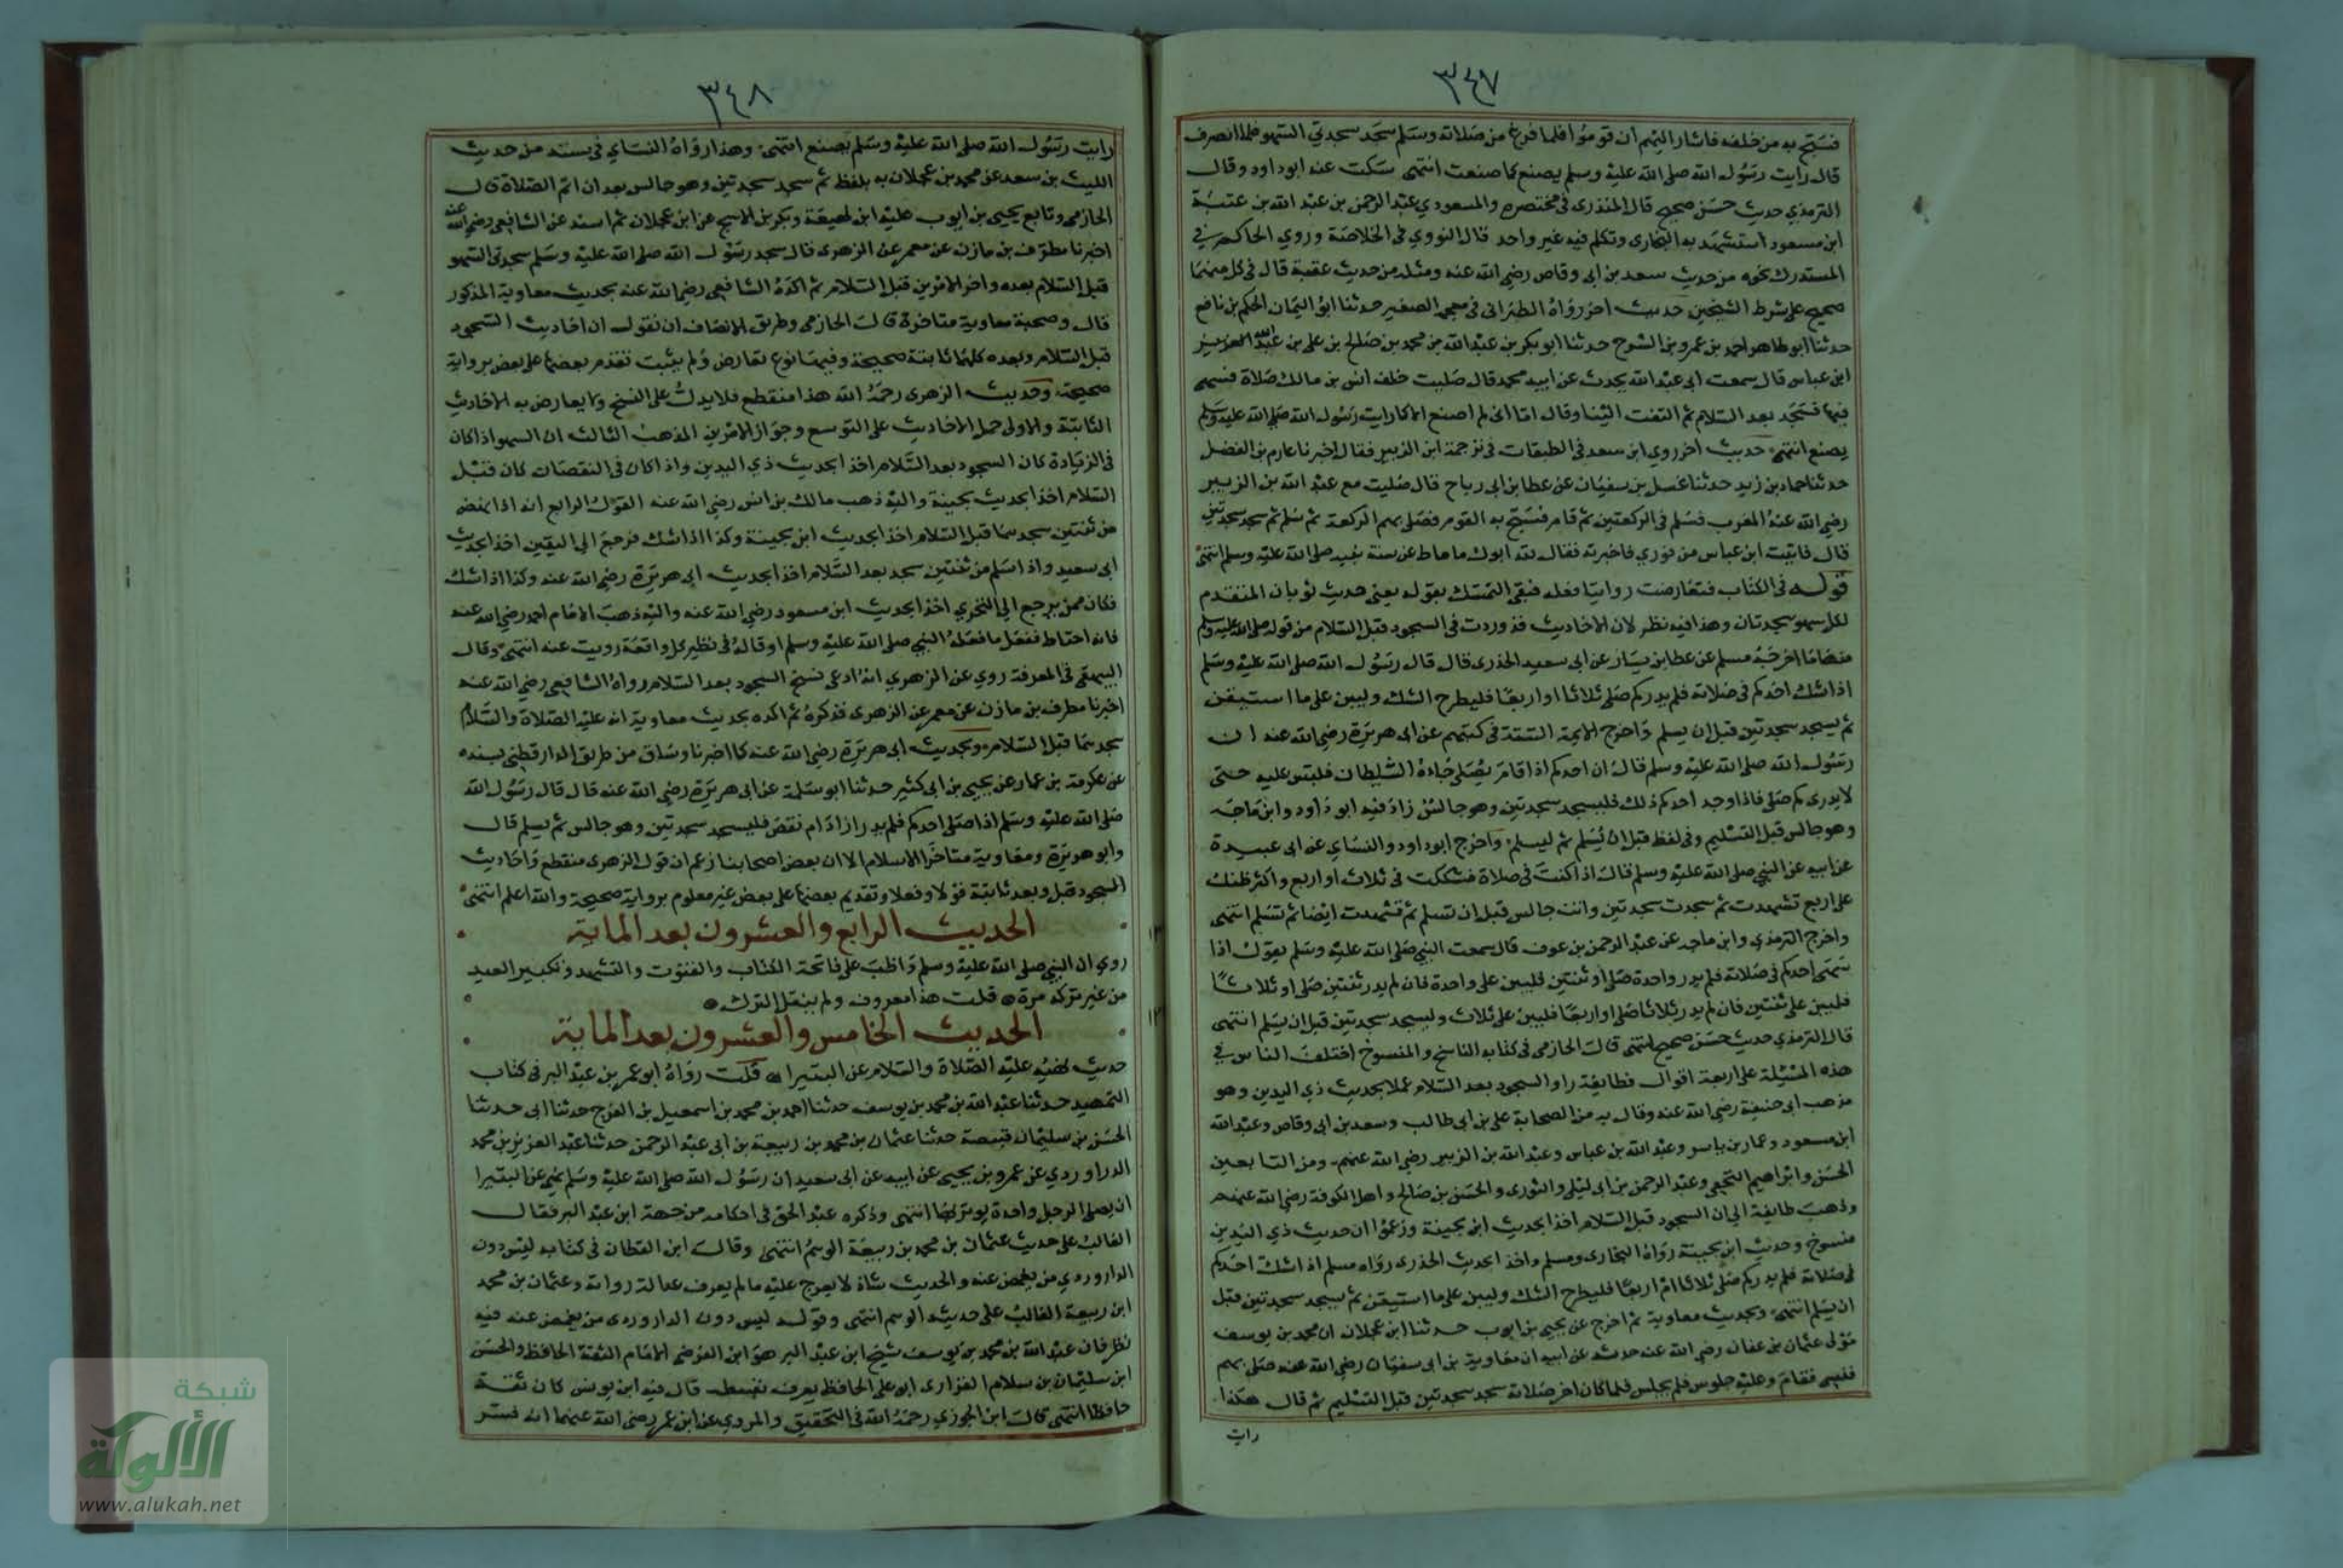 ٣٤٧
فسبح به من خلفه فاشار اليهم ان قوموا فلما فرغ من صلاته وسلم سجد سجدتي السهو فلما انصرف
قال رايت رسول الله صلى الله عليه وسلم يصنع كما صنعت انتهى سكت عنه ابوداود وقال
الترمذي حديث حسن صحيح قال المنذرى فى مختصره والمسعودي عبد الرحمن بن عبد الله بن عتبة
ابن مسعود استشهد به البخارى وتكلم فيه غير واحد قال النووي فى الخلاصة وروي الحاكم في
المستدرك نحوه من حديث سعد بن ابى وقاص رضي الله عنه ومثله من حديث عقبة قال فى كل منهما
صحيح على شرط الشيخين حديث اخر رواه الطبرانى فى معجمه الصغير حدثنا ابو اليمان الحكم بن نافع
حدثنا ابو طاهر احمد بن عمرو بن السرح حدثنا ابو بكر بن عبد الله بن محمد بن صالح بن على بن عبد الله العزيز
ابن عباس قال سمعت ابى عبد الله يحدث عن ابيه محمد قال صليت خلف انس بن مالك صلاة فسهى
فيها فسجد بعد السلام ثم التفت الينا وقال اما انى لم اصنع الا كما رايت رسول الله صلى الله عليه وسلم
يصنع انتهى حديث اخر روي ابن سعد فى الطبقات فى ترجمة ابن الزبير فقال اخبرنا عارم بن الفضل
حدثنا حماد بن زيد حدثنا عسل بن سفيان عن عطا بن ابى رباح قال صليت مع عبد الله بن الزبير
رضي الله عنه المغرب فسلم فى الركعتين ثم قام فسبح به القوم فصلى بهم الركعة ثم سلم ثم سجد سجدتين
قال فاتيت ابن عباس من فوري فاخبرته فقال لله ابوك ما ماط عن سنة نبيه صلى الله عليه وسلم انتهى
قوله فى الكتاب فتعارضت روايتا فعله فبقى التمسك بقوله يعنى حديث ثوبان المتقدم
لكل سهو سجدتان وهذا فيه نظر لان الاحاديث قد وردت فى السجود قبل السلام من قوله صلى الله عليه وسلم
منها ما اخرجه مسلم عن عطا بن يسار عن ابى سعيد الخدرى قال قال رسول الله صلى الله عليه وسلم
اذا شك احدكم فى صلاته فلم يدر كم صلى ثلاثا او اربعا فليطرح الشك وليبن على ما استيقن
ثم يسجد سجدتين قبل ان يسلم واخرج الايمة الستة فى كتبهم عن ابى هريرة رضي الله عنه ان
رسول الله صلى الله عليه وسلم قال ان احدكم اذا قام يصلى جاءه الشيطان فلبس عليه حتى
لا يدرى كم صلى فاذا وجد احدكم ذلك فليسجد سجدتين وهو جالس زاد فيه ابو داود وابن ماجه
وهو جالس قبل التسليم وفى لفظ قبل ان يسلم ثم ليسلم واخرج ابوداود والنساي عن ابى عبيدة
عن ابيه عن النبي صلى الله عليه وسلم قال اذا كنت فى صلاة فشككت فى ثلاث او اربع واكثر ظنك
على اربع تشهدت ثم سجدت سجدتين وانت جالس قبل ان تسلم ثم تشهدت ايضا ثم تسلم انتهى
واخرج الترمذي وابن ماجه عن عبد الرحمن بن عوف قال سمعت النبي صلى الله عليه وسلم يقول اذا
سهى احدكم فى صلاته فلم يدر واحدة صلى او ثنتين فليبن على واحدة فان لم يدر ثنتين صلى او ثلاثا
فليبن على ثنتين فان لم يدر ثلاثا صلى او اربعا فليبن على ثلاث وليسجد سجدتين قبل ان يسلم انتهى
قال الترمذي حديث حسن صحيح انتهى قال الحازمى فى كتابه الناسخ والمنسوخ اختلف الناس في
هذه المسئلة على اربعة اقوال فطايفة راوا السجود بعد السلام عملا بحديث ذي اليدين وهو
مذهب ابى حنيفة رضي الله عنه وقال به من الصحابة على بن ابي طالب وسعد بن ابى وقاص وعبد الله
ابن مسعود وعمار بن ياسر وعبد الله بن عباس وعبد الله بن الزبير رضي الله عنهم ومن التابعين
الحسن وابراهيم النخعى وعبد الرحمن بن ابى ليلى والثورى والحسن بن صالح واهل الكوفة رضي الله عنهم
وذهب طايفة الى ان السجود قبل السلام اخذا بحديث ابن بحينة وزعموا ان حديث ذي اليدين
منسوخ وحديث ابن بحينة رواه البخارى ومسلم واخذ ابحديث الخدرى رواه مسلم اذا شك احدكم
فى صلاته فلم يدر كم صلى ثلاثا ام اربعا فليطرح الشك وليبن على ما استيقن ثم يسجد سجدتين قبل
ان يسلم انتهى وبحديث معاوية ثم اخرج عن يحيى بن ايوب حدثنا ابن عجلان ان محمد بن يوسف
مولى عثمان بن عفان رضي الله عنه حدثه عن ابيه ان معاوية بن ابى سفيان رضي الله عنه صلى بهم
فنسى فقام وعليه جلوس فلم يجلس فلما كان اخر صلاته سجد سجدتين قبل التسليم ثم قال هكذا
رايت
٣٤٨
رايت رسول الله صلى الله عليه وسلم يصنع انتهى وهذا رواه النساي فى سننه من حديث
الليث بن سعد عن محمد بن عجلان به بلفظ ثم سجد سجدتين وهو جالس بعد ان اتم الصلاة قال
الحازمى وتابع يحيى بن ايوب عليه ابن لهيعة وبكر بن الاشج عن ابن عجلان ثم اسند عن الشافعى رضي الله عنه
اخبرنا مطرف بن مازن عن معمر عن الزهرى قال سجد رسول الله صلى الله عليه وسلم سجدتى السهو
قبل السلام بعده واخر الامرين قبل السلام ثم اكده الشافعى رضي الله عنه بحديث معاوية المذكور
قال وصحبة معاوية متاخرة قال الحازمى وطريق الانصاف ان نقول ان احاديث السجود
قبل السلام وبعده كلها ثابتة صحيحة وفيها نوع تعارض ولم يثبت تقدم بعضها على بعض برواية
صحيحة وحديث الزهرى رحمه الله هذا منقطع فلا يدل على النسخ ولا يعارض به الاحاديث
الثابتة والاولى حمل الاحاديث على التوسع وجواز الامرين المذهب الثالث ان السهو اذا كان
فى الزيادة كان السجود بعد السلام اخذا بحديث ذي اليدين واذا كان فى النقصان كان قبل
السلام اخذا بحديث بحينة واليه ذهب مالك بن انس رضي الله عنه القول الرابع انه اذا نهض
من ثنتين سجدهما قبل السلام اخذا بحديث ابن بحينة وكذا اذا شك فرجع الى اليقين اخذا بحديث
ابى سعيد واذا سلم من ثنتين سجد بعد السلام اخذا بحديث ابى هريرة رضي الله عنه وكذا اذا شك
فكان ممن يرجع الى التحري اخذا بحديث ابن مسعود رضي الله عنه واليه ذهب الامام احمد رضي الله عنه
فانه احتاط ففعل ما فعله النبي صلى الله عليه وسلم او قاله فى نظير كل واقعة رويت عنه انتهى وقال
البيهقى فى المعرفة روي عن الزهري انه ادعى نسخ السجود بعد السلام رواه الشافعى رضي الله عنه
اخبرنا مطرف بن مازن عن معمر عن الزهرى فذكره ثم اكده بحديث معاوية انه عليه الصلاة والسلام
سجدهما قبل السلام وبحديث ابى هريرة رضي الله عنه كما اخبرنا وساق من طريق الدارقطنى بسنده
عن عكرمة بن عمار عن يحيى بن ابى كثير حدثنا ابو سلمة عن ابى هريرة رضي الله عنه قال قال رسول الله
صلى الله عليه وسلم اذا صلى احدكم فلم يدر ازاد ام نقص فليسجد سجدتين وهو جالس ثم يسلم قال
وابو هريرة ومعاوية متاخرا الاسلام الا ان بعض اصحابنا زعم ان قول الزهرى منقطع واحاديث
السجود قبل وبعد ثابتة قولا وفعلا وتقديم بعضها على بعض غير معلوم برواية صحيحة والله اعلم انتهى
الحديث الرابع والعشرون بعد الماية
روي ان النبي صلى الله عليه وسلم واظب على فاتحة الكتاب والقنوت والتشهد وتكبير العيد
من غير تركه مرة قلت هذا معروف ولم ينقل الترك
الحديث الخامس والعشرون بعد الماية
حديث نهيه عليه الصلاة والسلام عن البتيرا قلت رواه ابو عمر بن عبد البر فى كتاب
التمهيد حدثنا عبد الله بن محمد بن يوسف حدثنا احمد بن محمد بن اسمعيل بن الفرج حدثنا ابى حدثنا
الحسن بن سليمان قبيصة حدثنا عثمان بن محمد بن ربيعة بن ابى عبد الرحمن حدثنا عبد العزيز بن محمد
الدراوردي عن عمرو بن يحيى عن ابيه عن ابى سعيد ان رسول الله صلى الله عليه وسلم نهى عن البتيرا
ان يصلى الرجل واحدة يوتر بها انتهى وذكره عبد الحق فى احكامه من جهة ابن عبد البر فقال
الغالب على حديث عثمان بن محمد بن ربيعة الوهم انتهى وقال ابن القطان فى كتابه ليس دون
الداروردي من يغمض عنه والحديث شاذ لا يعرج عليه ما لم يعرف عدالة رواته وعثمان بن محمد
ابن ربيعة الغالب على حديثه الوهم انتهى وقوله ليس دون الداروردى من يغمض عنه فيه
نظر فان عبد الله بن محمد بن يوسف شيخ ابن عبد البر هو ابن الفرضى الامام الثقة الحافظ والحسن
ابن سليمان بن سلام الفزارى ابو على الحافظ يعرف بقبيطه قال فيه ابن يونس كان ثقة
حافظا انتهى قال ابن الجوزي رحمه الله فى التحقيق والمروي عن ابن عمر رضي الله عنهما انه فسر
شبكة
الألوكة
www.alukah.net